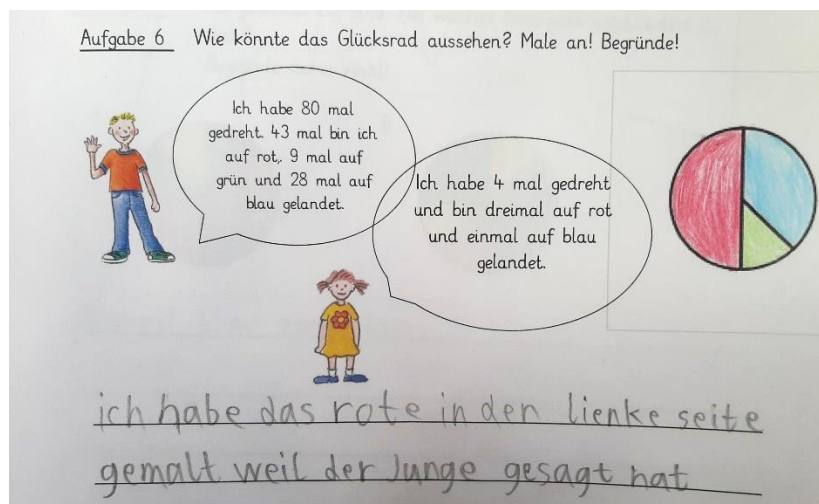 Aufgabe 6 Wie könnte das Glücksrad aussehen? Male an! Begründe!
Ich habe 80 mal
gedreht. 43 mal bin ich
auf rot, 9 mal auf
grün und 28 mal auf
blau gelandet.
Ich habe 4 mal gedreht
und bin dreimal auf rot
und einmal auf blau
gelandet.
ich habe das rote in den lienke seite
gemalt weil der Junge gesagt hat